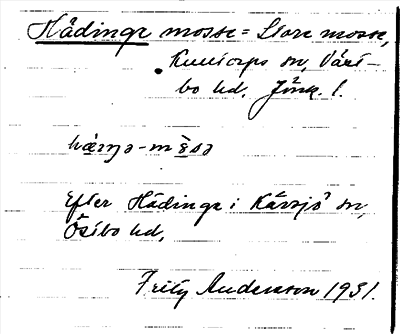 Hådinge mosse = Stora mosse,
Kulltorps sn, Väst-
bo hd. Jönk. l.
Efter Hådinge i Kävsjö sn,
Östbo hd,
Fritz Andersson 1931.